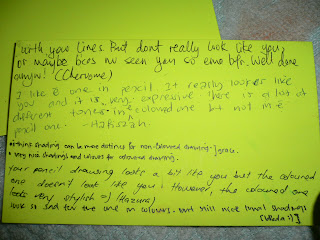 with your lines. But dont really look like you
or maybe bcos nv seen you so emo bfr. Well done
anyw! (Cheryme)
I like é one in pencil. It really looks like
you and it is very expressive. There is a lot of
different tones in é coloured one but not in é
pencil one. - Hafiszah
nothing shading can be more defined for non-coloured drawing - ]grace.
very nice shadings and values for coloured drawing.
Your pencil drawing looks a bit like you but the coloured
one doesn't look like you. However, the coloured one
looks very stylish =) (Hazwani)
look so sad for the one in colours. but still nice tonal shadings